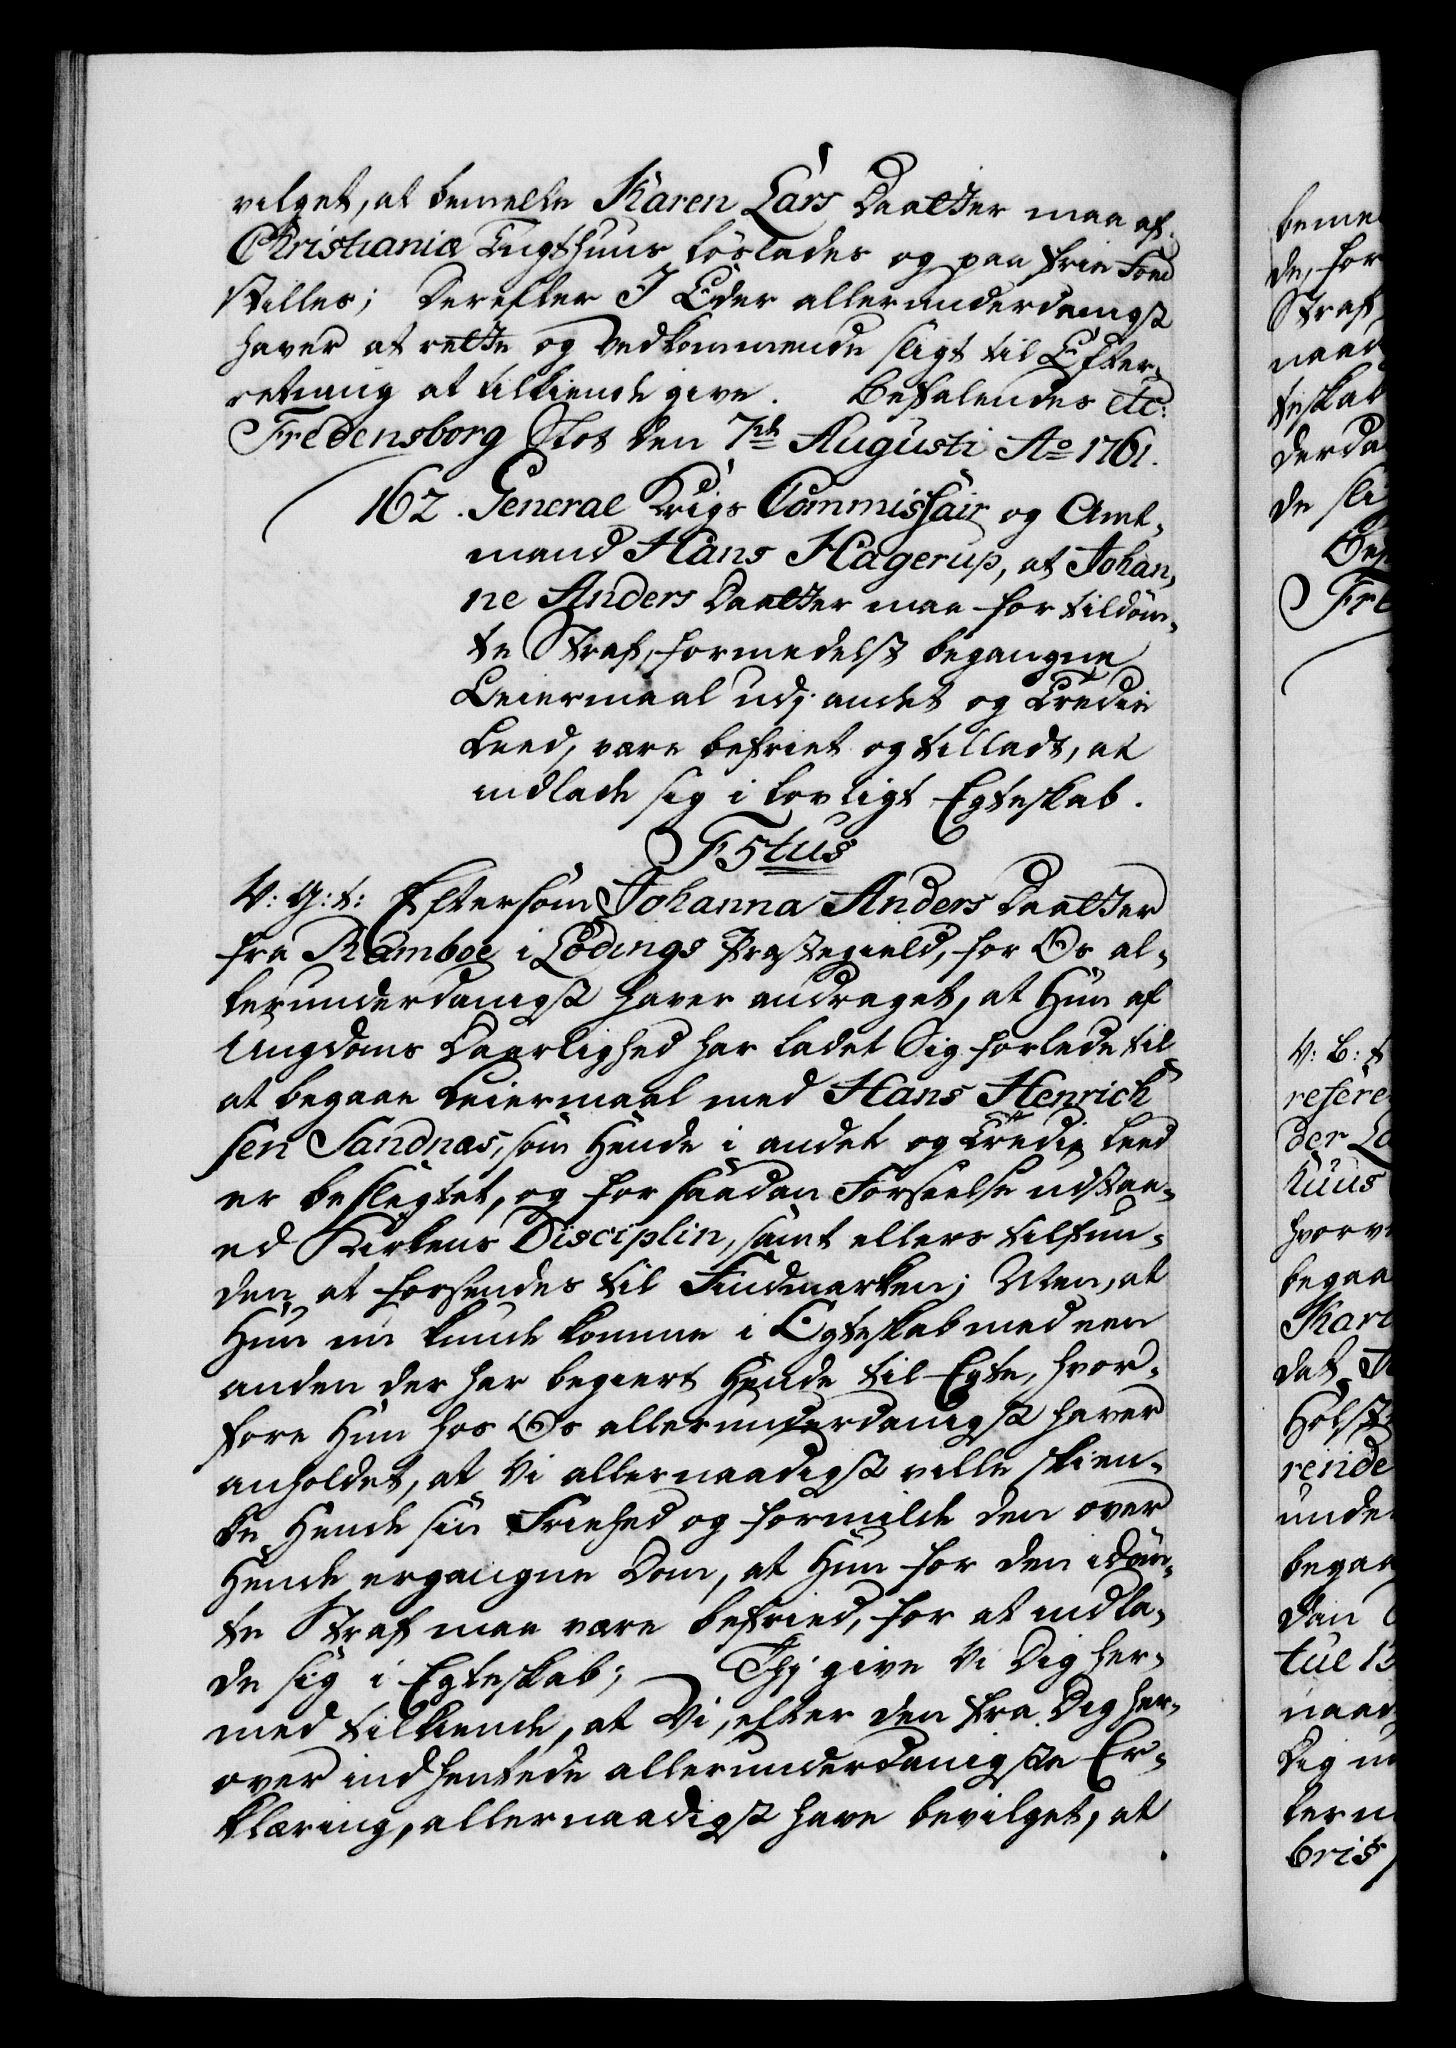 vilget, at bemelte Karen Lars Daatter maa af
Christianiæ Tugthuus løslades og paa frie Foed
stilles; Derefter I Eder allerunderdanigst
haver at rette og Vedkommende sligt til Efter-
retning at tilkiende give. Befalendes etc:
Fredensborg Slot den 7de Augusti Ao 1761.
162. General Krigs Commissair og Amt-
mand Hans Hagerup, at Johan-
ne Anders Daatter maa for tildøm-
te Straf, formedelst begangne
Leiermaal udj andet og Tredie
Leed, være befriet og tilladt, at
indlade sig i lovligt Egteskab.
F5tus
V: G: t: Eftersom Johanna Anders Daatter
fra Ramboe i Lødings Præstegield, for Os al-
lerunderdanigst haver andraget, at Hun af
Ungdoms Daarlighed har ladet Sig forlede til
at begaae Leiermaal med Hans Henrich
sen Sandnæs, som Hende i andet og Tredie Leed
er beslægtet, og for saadan Forseelse udstaa-
ed Kirkens Disciplin, samt ellers tilfun-
den at forsendes til Findmarken; Men, at
Hun nu kunde komme i Egteskab med een
anden der har begiert Hende til Egte, hvor-
fore Hun hos Os allerunderdanigst haver
anholdet, at Vi allernaadigst ville skien-
ke Hende sin Friehed og formilde den over
Hende ergangne Dom, at Hun for den idøm-
te Straf maa være befried, for at indla-
de sig i Egteskab; Thj give Vi Dig her-
med tilkiende, at Vi, efter den fra Dig her-
over indhentede allerunderdanigste Er-
klæring, allernaadigst have bevilget, at
beme
de, for
Straf
naad
teskab
derda
de sli
Bef
Fre
V: G: t
refere
der La
huus
hvorv
begaa
Kare
dat
Holst
rende
unde
begaa
dan
tul 13
naad
Dig
lern
bris